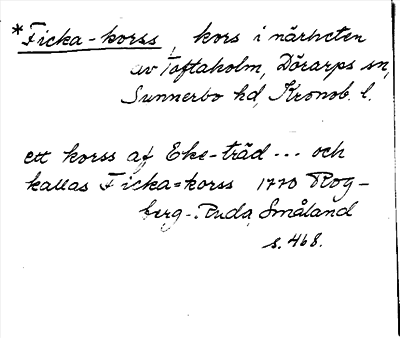 *Ficka-korss, kors i närheten
av Toftaholm, Dörarps sn,
Sunnerbo hd, Kronob. l.
ett korss af Eke-träd --- och
kallas Ficka=korss 1770 Rog-
berg-Ruda, Småland
s. 468.